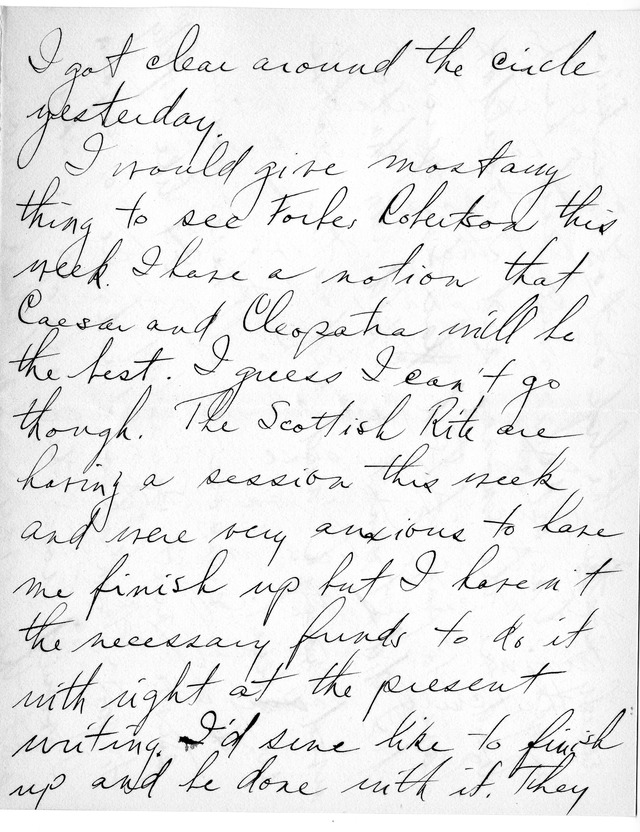 I got clear around the circle
yesterday.
I would give most any
thing to see Forbes Robertson this
week. I have a notion that
Caesar and Cleopatra will be
the best. I guess I can't go
though. The Scottish Rite are
having a session this week
and were very anxious to have
me finish up but I haven't
the necessary funds to do it
with right at the present
writing. I'd sure like to finish
up and be done with it. They